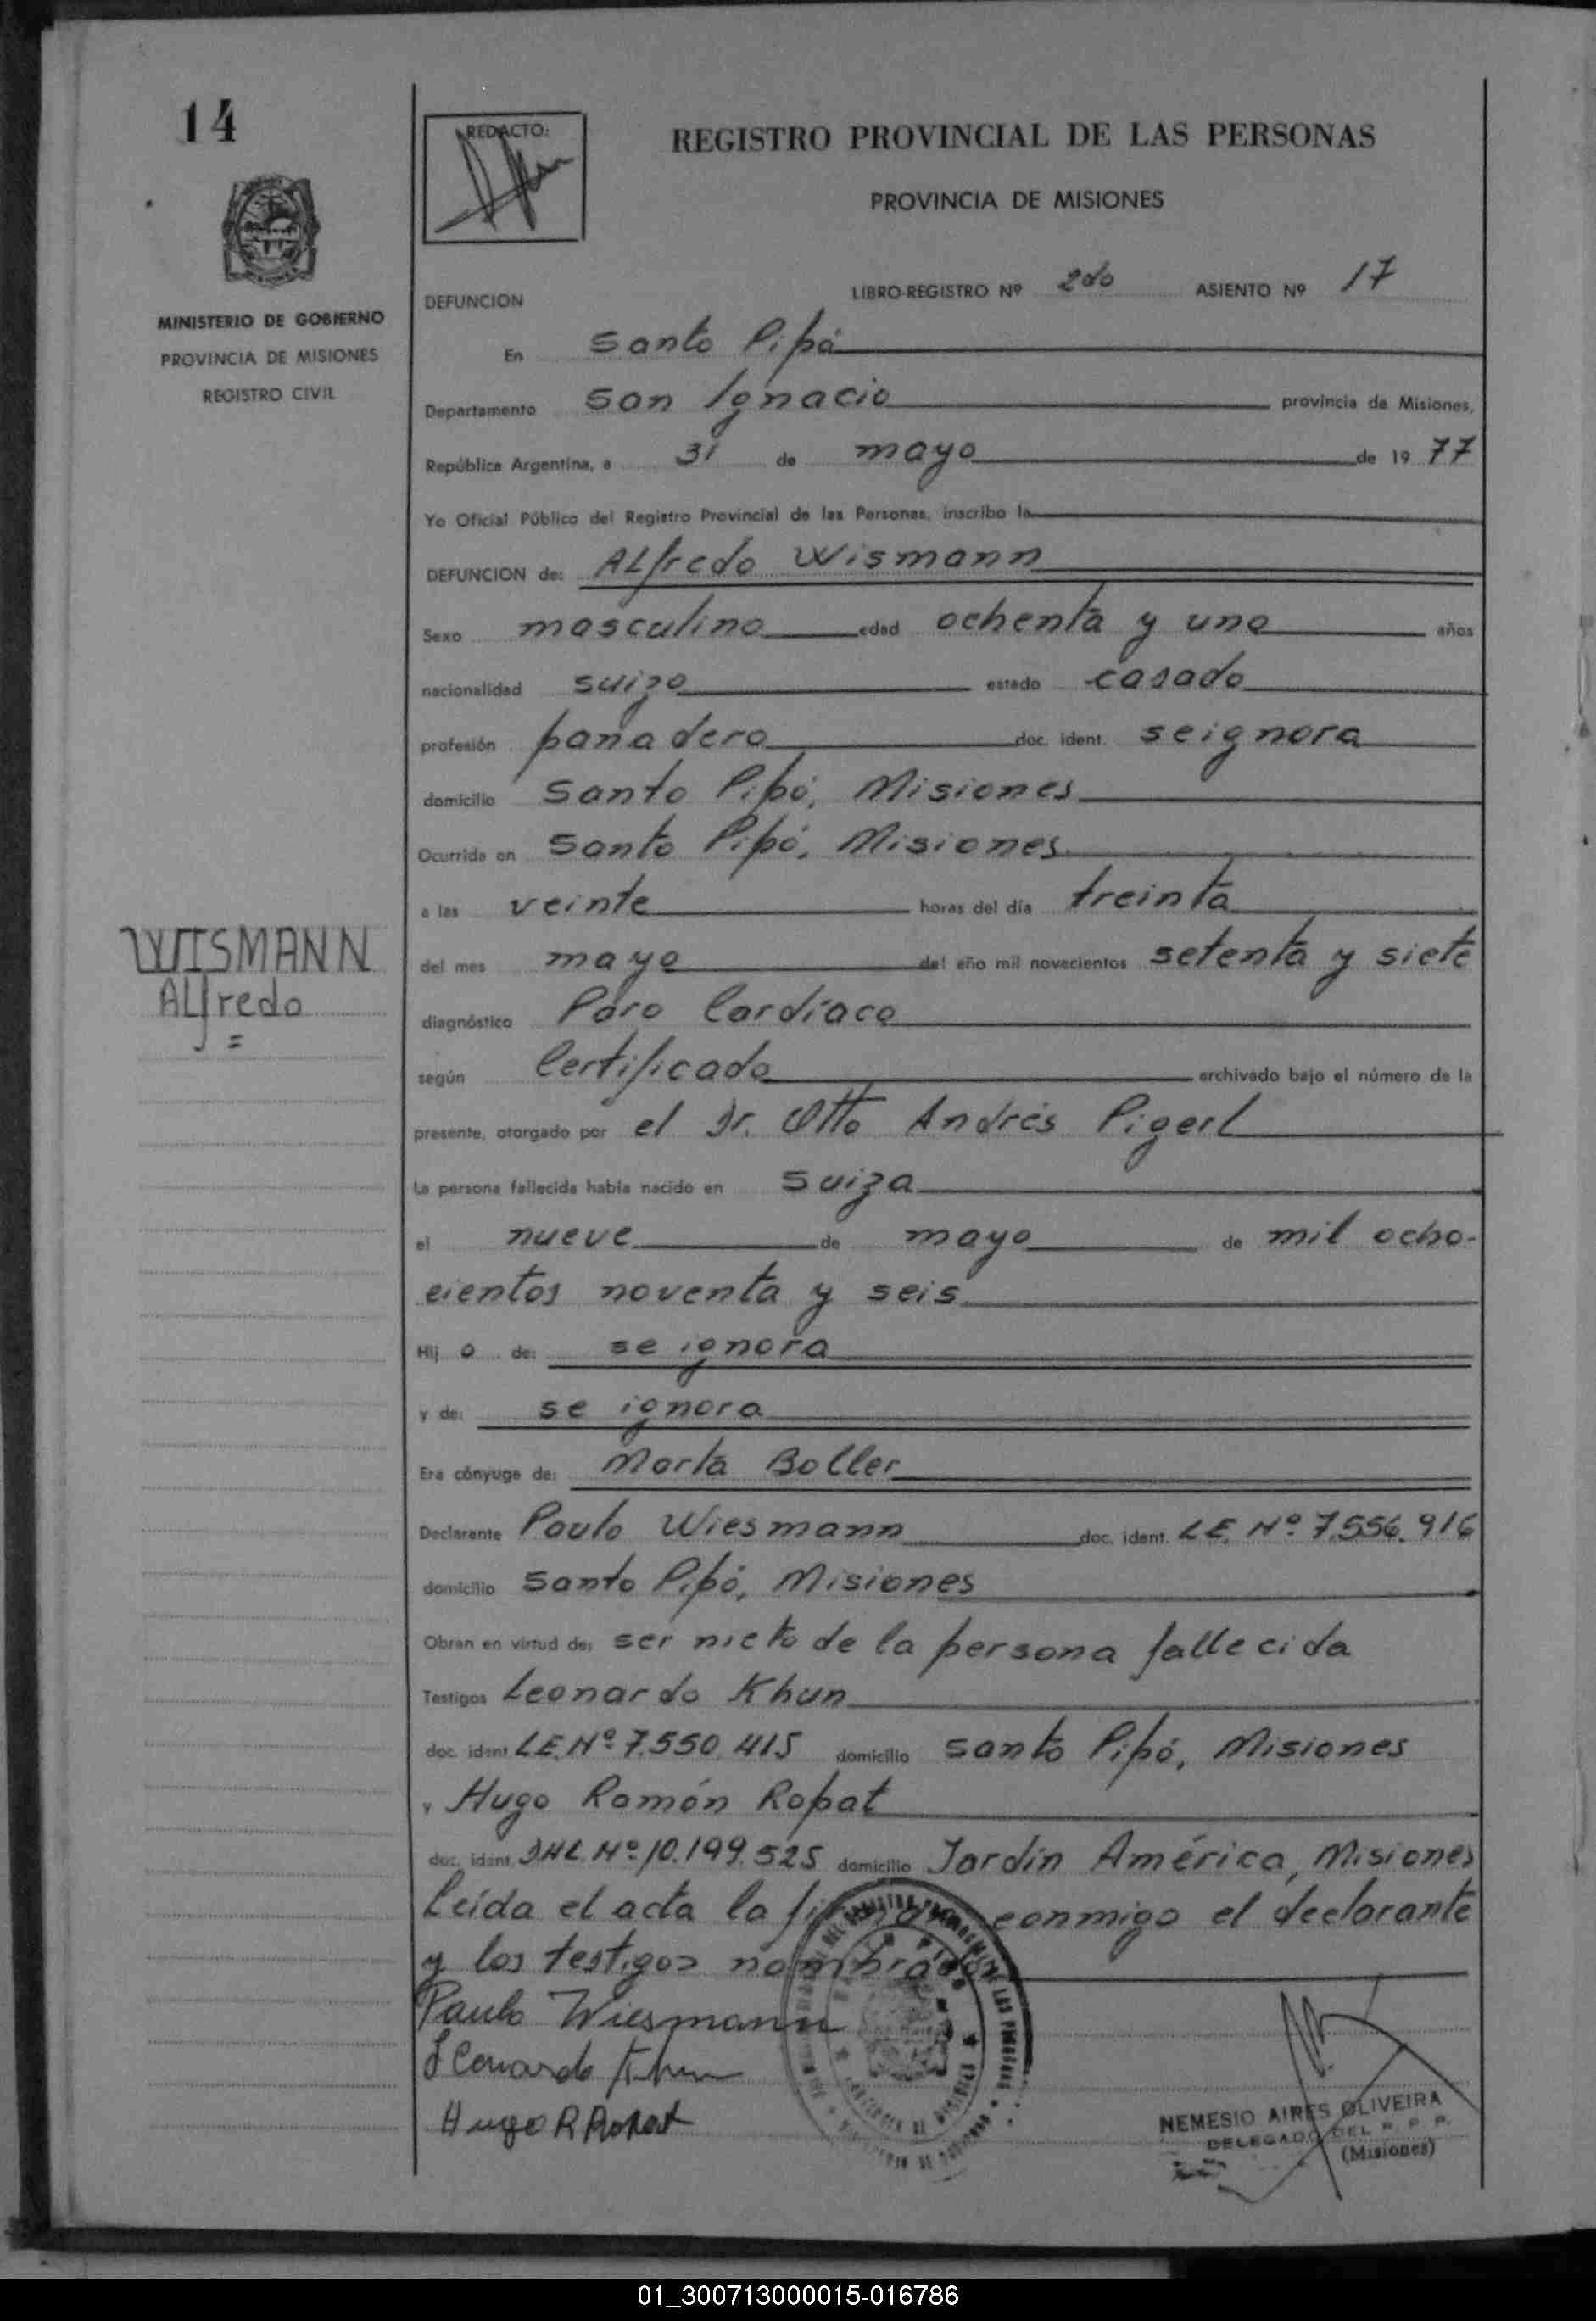 14
REDACTO:
REGISTRO PROVINCIAL DE LAS PERSONAS
PROVINCIA DE MISIONES
MINISTERIO DE GOBIERNO
PROVINCIA DE MISIONES
REGISTRO CIVIL
DEFUNCION LIBRO-REGISTRO Nº 2do ASIENTO Nº 17
En Santo Pipó
Departamento San Ignacio provincia de Misiones,
República Argentina, a 31 de mayo de 1977
Yo Oficial Público del Registro Provincial de las Personas, inscribo la
DEFUNCION de: ALfredo Wismann
Sexo masculino edad ochenta y uno años
nacionalidad suizo estado casado
profesión panadero doc. ident. seignora
domicilio Santo Pipó, Misiones
Ocurrida en Santo Pipó, Misiones
a las veinte horas del día treinta
WISMANN
ALfredo
=
del mes mayo del año mil novecientos setenta y siete
diagnóstico Paro Cardíaco
según Certificado archivado bajo el número de la
presente, otorgado por el Dr. Otto Andrés Pigerl
La persona fallecida había nacido en Suiza
el nueve de mayo de mil ocho-
cientos noventa y seis
Hij o de: se ignora
y de: se ignora
Era cónyuge de: Marta Boller
Declarante Paulo Wiesmann doc. ident. L.E. Nº 7.556.916
domicilio Santo Pipó, Misiones
Obran en virtud de: ser nieto de la persona fallecida
Testigos Leonardo Khun
doc. ident L.E. Nº 7.550.415 domicilio Santo Pipó, Misiones
y Hugo Ramón Ropat
doc. ident. DNI. Nº 10.199.525 domicilio Jardín América, Misiones
Leída el acta la firman conmigo el declarante
y los testigos nombrados
Paulo Wiesmann
Leonardo Khun
Hugo R Ropat
NEMESIO AIRES OLIVEIRA
DELEGADO DEL R. P. P.
(Misiones)
01_300713000015-016786